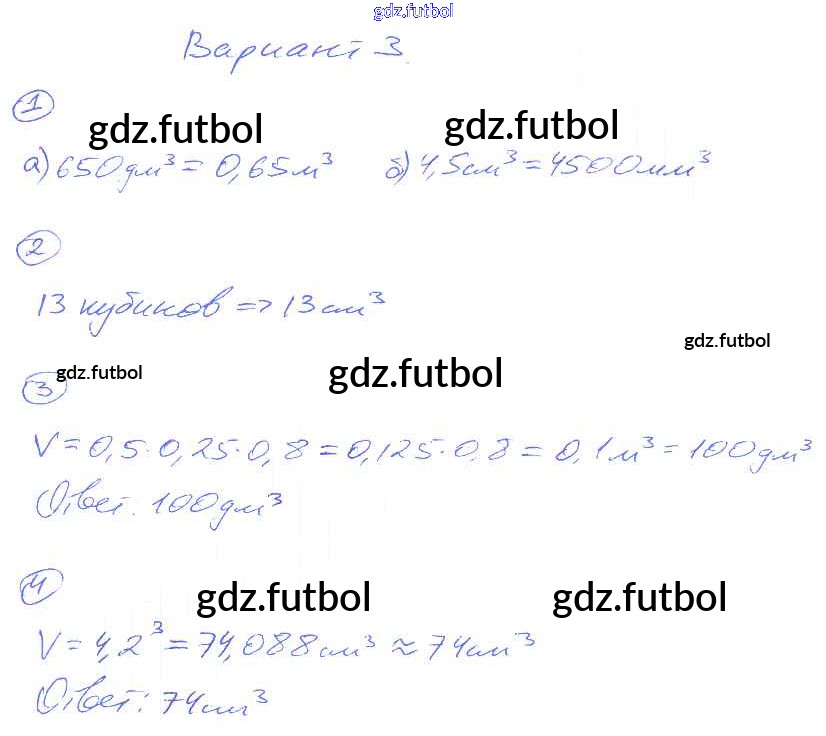 gdz.futbol
Вариант 3.
1
gdz.futbol gdz.futbol
а) 650 дм³ = 0,65 м³ б) 4,5 см³ = 4500 мм³
2
13 кубиков => 13 см³
gdz.futbol
3 gdz.futbol gdz.futbol
V = 0,5 · 0,25 · 0,8 = 0,125 · 0,8 = 0,1 м³ = 100 дм³
Ответ. 100 дм³
4
gdz.futbol gdz.futbol
V = 4,2³ = 74,088 см³ ≈ 74 см³
Ответ: 74 см³